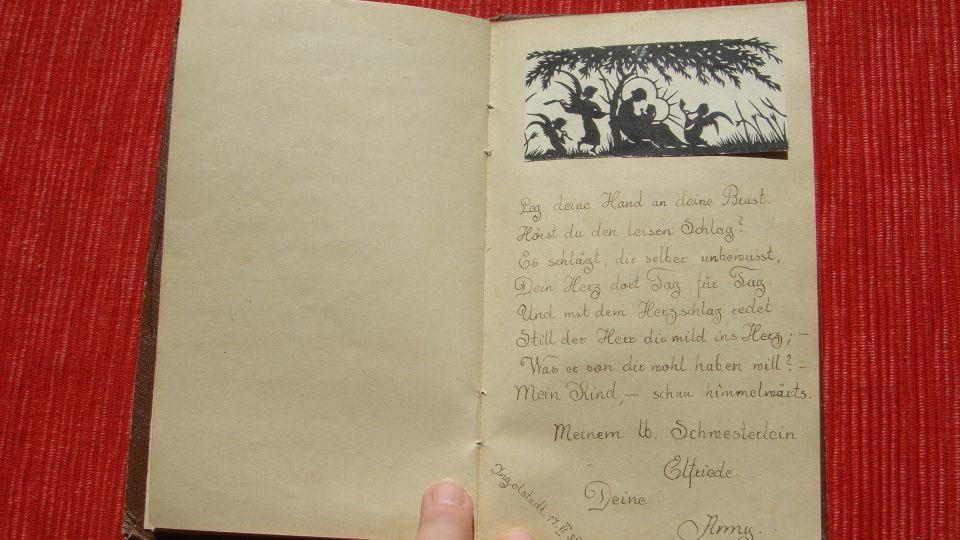 Leg deine Hand an deine Brust.
Hörst du den leisen Schlag?
Es schlägt, dir selber unbewusst,
Dein Herz dort Tag für Tag.
Und mit dem Herzschlag redet
Still der Herr dir mild ins Herz; –
Was er von dir wohl haben will? –
Mein Kind, – schau himmelwärts.
Meinem lb. Schwesterlein
Elfriede
Deine
Anny.
Ingolstadt 17. VI